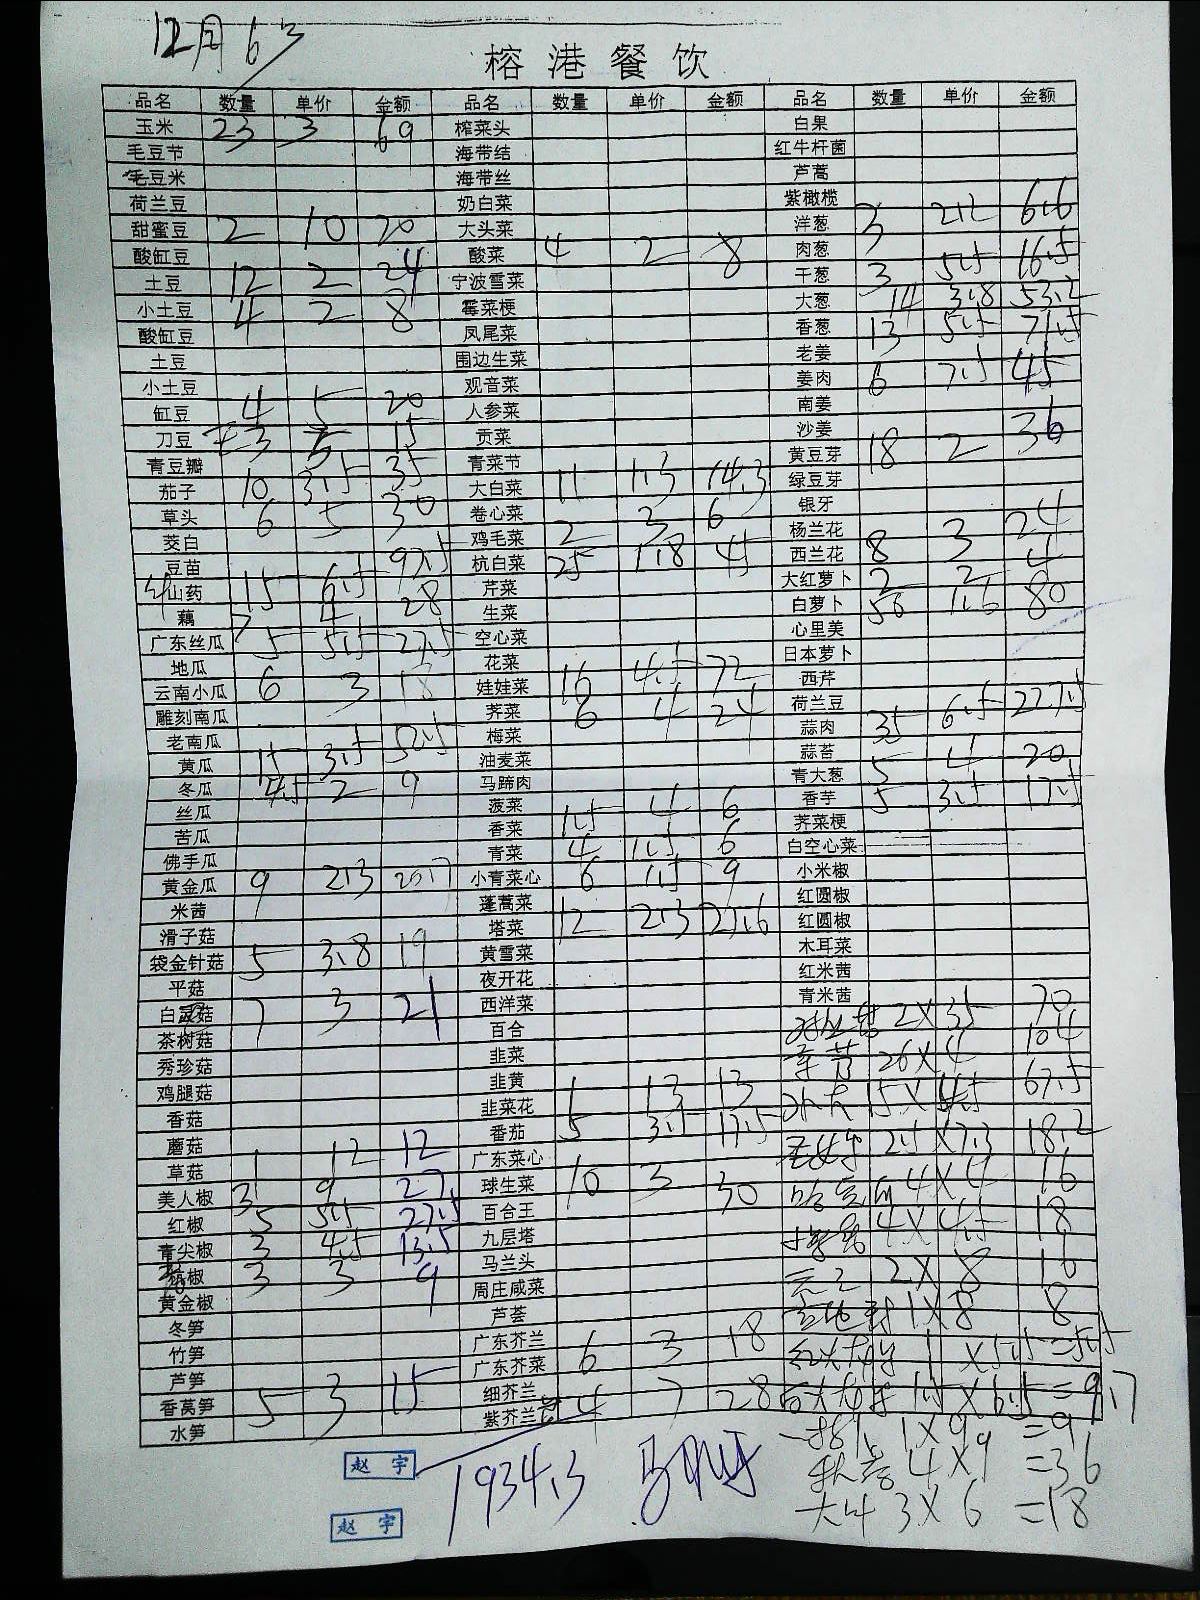 12月6日
榕港餐饮
品名 数量 单价 金额
玉米 23 3 69
毛豆节
毛豆米
荷兰豆
甜蜜豆 2 10 20
酸缸豆
土豆 12 2 24
小土豆 4 2 8
酸缸豆
土豆
小土豆
缸豆 4 5 20
刀豆 3 5 15
青豆瓣
茄子 10 3.5 35
草头 6 5 30
茭白
豆苗
山药 15 6.5 97.5
藕 7 4 28
广东丝瓜 5 5.5 27.5
地瓜
云南小瓜 6 3 18
雕刻南瓜
老南瓜
黄瓜 15 3.5 52.5
冬瓜 4.5 2 9
丝瓜
苦瓜
佛手瓜
黄金瓜 9 2.3 20.7
米茜
滑子菇
袋金针菇 5 3.8 19
平菇
白灵菇 7 3 21
茶树菇
秀珍菇
鸡腿菇
香菇
蘑菇
草菇 1 12 12
美人椒 3 9 27
红椒 5 5.5 27.5
青尖椒 3 4.5 13.5
椒 3 3 9
黄金椒
冬笋
竹笋
芦笋
香莴笋 5 3 15
水笋
品名 数量 单价 金额
榨菜头
海带结
海带丝
奶白菜
大头菜
酸菜 4 2 8
宁波雪菜
霉菜梗
凤尾菜
围边生菜
观音菜
人参菜
贡菜
青菜节
大白菜 11 1.3 14.3
卷心菜
鸡毛菜 2 3 6
杭白菜 25 1.8 45
芹菜
生菜
空心菜
花菜
娃娃菜 16 4.5 72
荠菜 6 4 24
梅菜
油麦菜
马蹄肉
菠菜 1.5 4 6
香菜
青菜 4 1.5 6
小青菜心 6 1.5 9
蓬蒿菜
塔菜 12 2.3 27.6
黄雪菜
夜开花
西洋菜
百合
韭菜
韭黄
韭菜花 1 13 13
番茄 5 3.5 17.5
广东菜心
球生菜 10 3 30
百合王
九层塔
马兰头
周庄咸菜
芦荟
广东芥兰
广东芥菜 6 3 18
细芥兰
紫芥兰 4 7 28
品名 数量 单价 金额
白果
红牛杆菌
芦蒿
紫橄榄
洋葱 3 2.2 6.6
肉葱
干葱 3 5.5 16.5
大葱 14 3.8 53.2
香葱 13 5.5 71.5
老姜
姜肉 6 7.5 45
南姜
沙姜
黄豆芽 18 2 36
绿豆芽
银牙
杨兰花
西兰花 8 3 24
大红萝卜 2 2 4
白萝卜 50 1.6 80
心里美
日本萝卜
西芹
荷兰豆
蒜肉 35 6.5 227.5
蒜苔
青大葱 5 4 20
香芋 5 3.5 17.5
荠菜梗
白空心菜
小米椒
红圆椒
红圆椒
木耳菜
红米茜
青米茜
2×35 70
26×4 104
15×4.5 67.5
2.5×7.3 18.2
4×4 16
4×4.5 18
2×8 16
1×8 8
1×5.5=5.5
1.5×6.5=9.7
1×9=9
4×9=36
3×6=18
赵宇
1934.3
赵宇